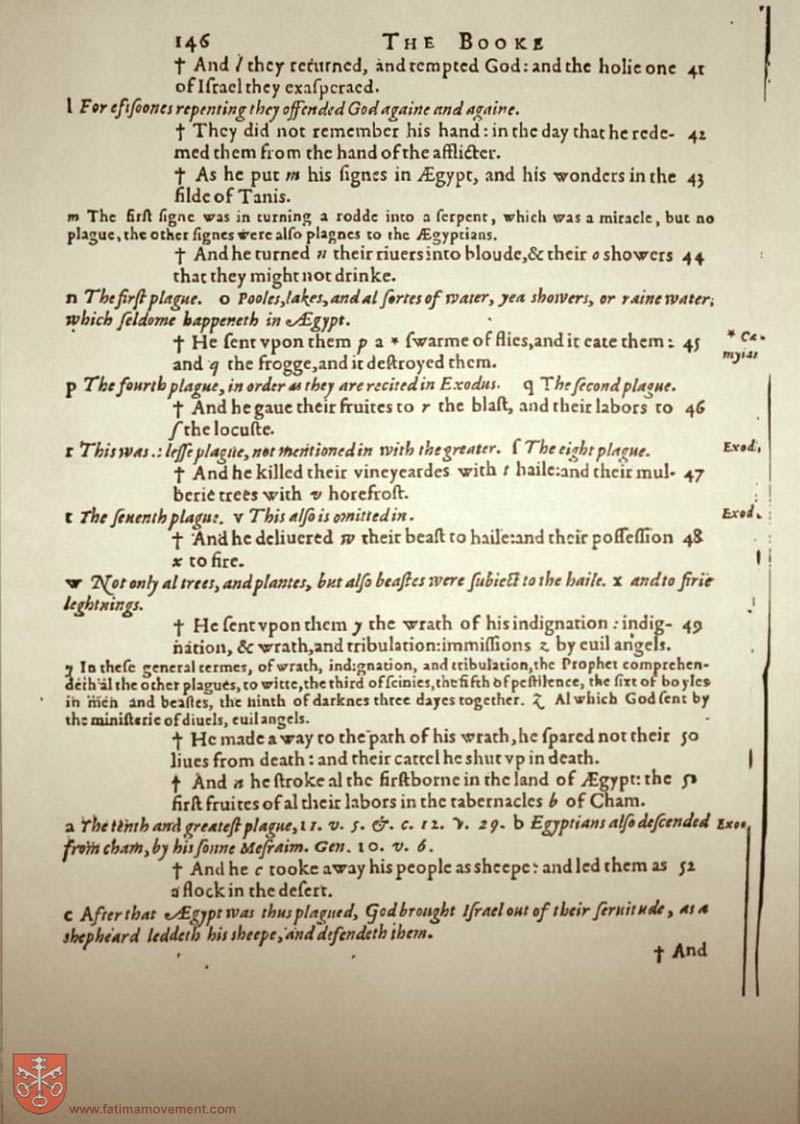 146 THE BOOKE
† And l they returned, and tempted God: and the holie one 41
of Iſrael they exaſperaed.
l For eftſoones repenting they offended God againe and againe.
† They did not remember his hand: in the day that he rede- 42
med them from the hand of the afflicter.
† As he put m his ſignes in Ægypt, and his wonders in the 43
filde of Tanis.
m The firſt ſigne was in turning a rodde into a ſerpent, which was a miracle, but no
plague, the other ſignes were alſo plagnes to the Ægyptians.
† And he turned n their riuers into bloude,& their o showers 44
that they might not drinke.
n The firſt plague. o Pooles, lakes, and al ſortes of water, yea showers, or raine water;
which ſeldome happeneth in Ægypt.
† He ſent vpon them p a * ſwarme of flies, and it eate them: 45
* Cæ-
myiæ
and q the frogge, and it deſtroyed them.
p The fourth plague, in order as they are recited in Exodus. q The ſecond plague.
† And he gaue their fruites to r the blaſt, and their labors to 46
ſ the locuſte.
r This was .: leſſe plague, not mentioned in with the greater. ſ The eight plague.
Exod,
† And he killed their vineyeardes with t haile: and their mul- 47
berie trees with v horefroſt.
t The ſeuenth plague. v This alſo is omitted in.
Exod.
† And he deliuered w their beaſt to haile: and their poſſeſſion 48
x to fire.
w Not only al trees, and plantes, but alſo beaſtes were ſubiect to the haile. x and to firie
leghtnings.
† He ſent vpon them y the wrath of his indignation: indig- 49
nation, & wrath, and tribulation: immiſſions z by euil angels.
y In theſe general termes, of wrath, indignation, and tribulation, the Prophet comprehen-
deth al the other plagues, to witte, the third of ſcinies, the fifth of peſtilence, the ſixt of boyles
in men and beaſtes, the ninth of darknes three dayes together. z Al which God ſent by
the miniſterie of diuels, euil angels.
† He made a way to the path of his wrath, he ſpared not their 50
liues from death: and their cattel he shut vp in death.
† And a he ſtroke al the firſtborne in the land of Ægypt: the 51
firſt fruites of al their labors in the tabernacles b of Cham.
a The tenth and greateſt plague, 11. v. 5. & c. 12. v. 29. b Egyptians alſo deſcended
Exo,
from cham, by his ſonne Meſraim. Gen. 10. v. 6.
† And he c tooke away his people as sheepe: and led them as 52
a flock in the deſert.
c After that Ægypt was thus plagued, God brought Iſrael out of their ſeruitude, as a
shepheard leddeth his sheepe, and defendeth them.
† And
www.fatimamovement.com